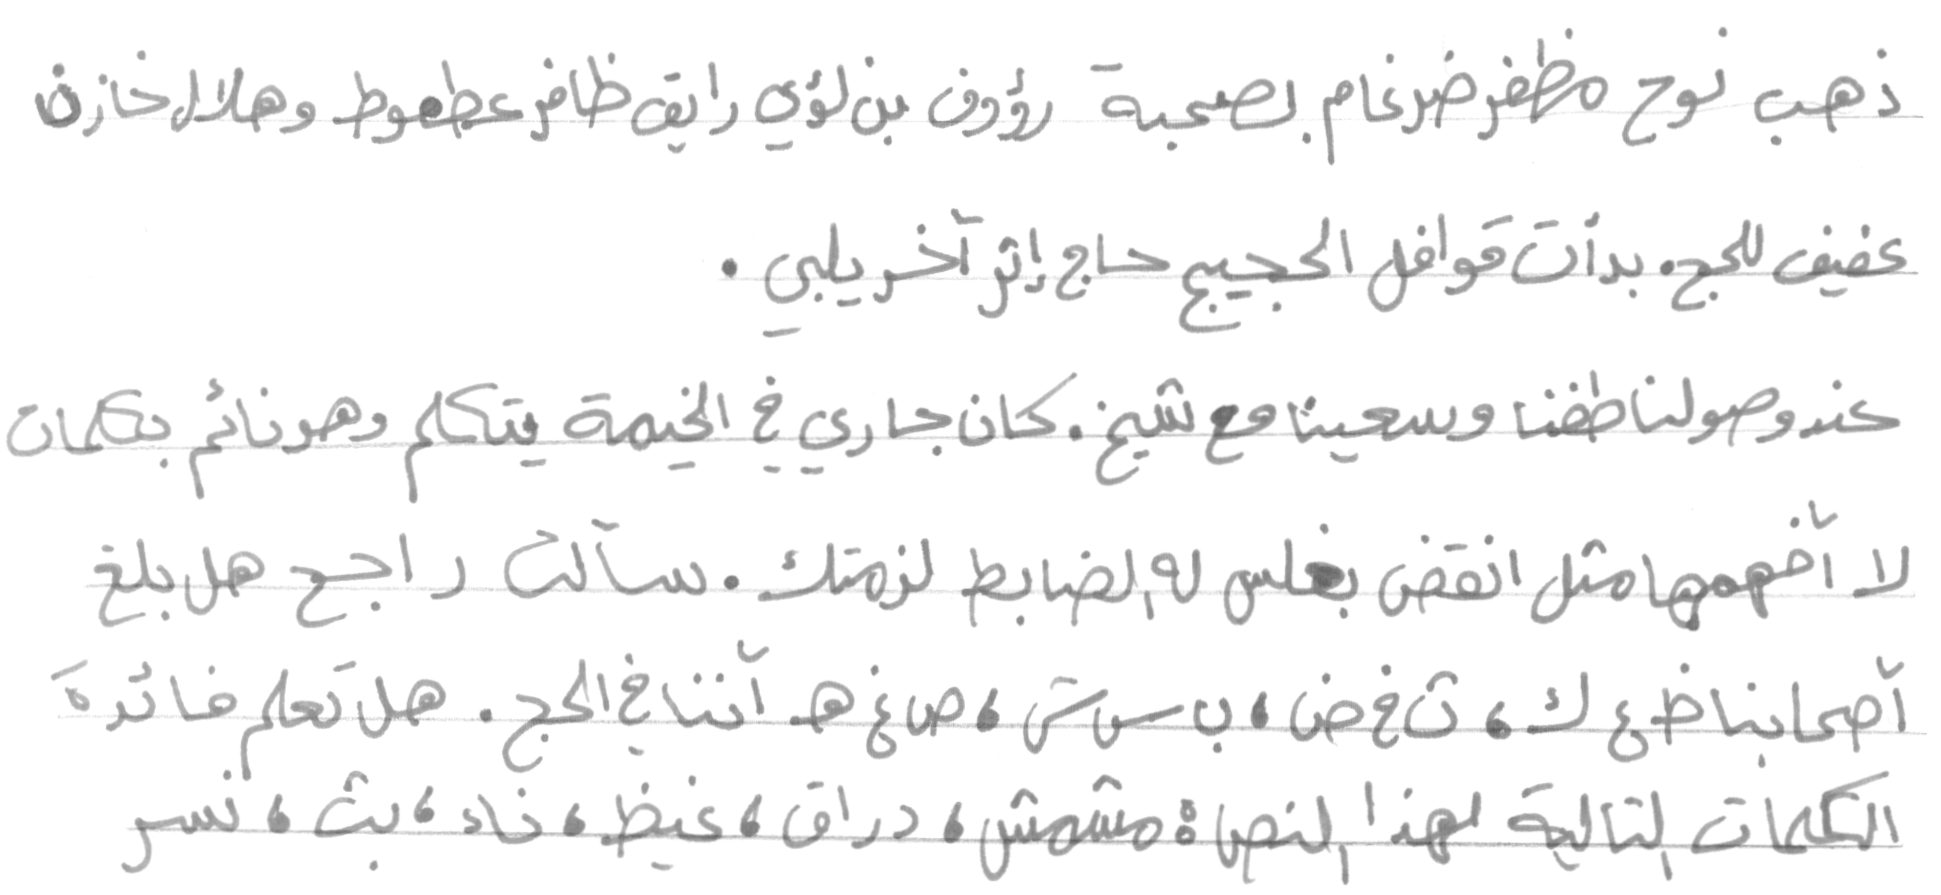 ذهب نوح مظفر ضرغام بصحبة رؤوف بن لؤي رايق ظافر عطعوط وهلال خازن
عفيف للحج. بدأت قوافل الحجيج حاج إثر آخر يلبي.
عند وصولنا طفنا وسعينا مع شيخ. كان جاري في الخيمة يتكلم وهو نائم بكلمات
لا أفهمها مثل انقض بغلس له الضابط لزمتك. سألت راجح هل بلغ
أصحابنا ظ ع ك، ث خ ض، ب س ش، ص غ هـ أننا في الحج. هل تعلم فائدة
الكلمات التالية لهذا النص: مشمش، دراق، غيظ، ناء، بث، نسر